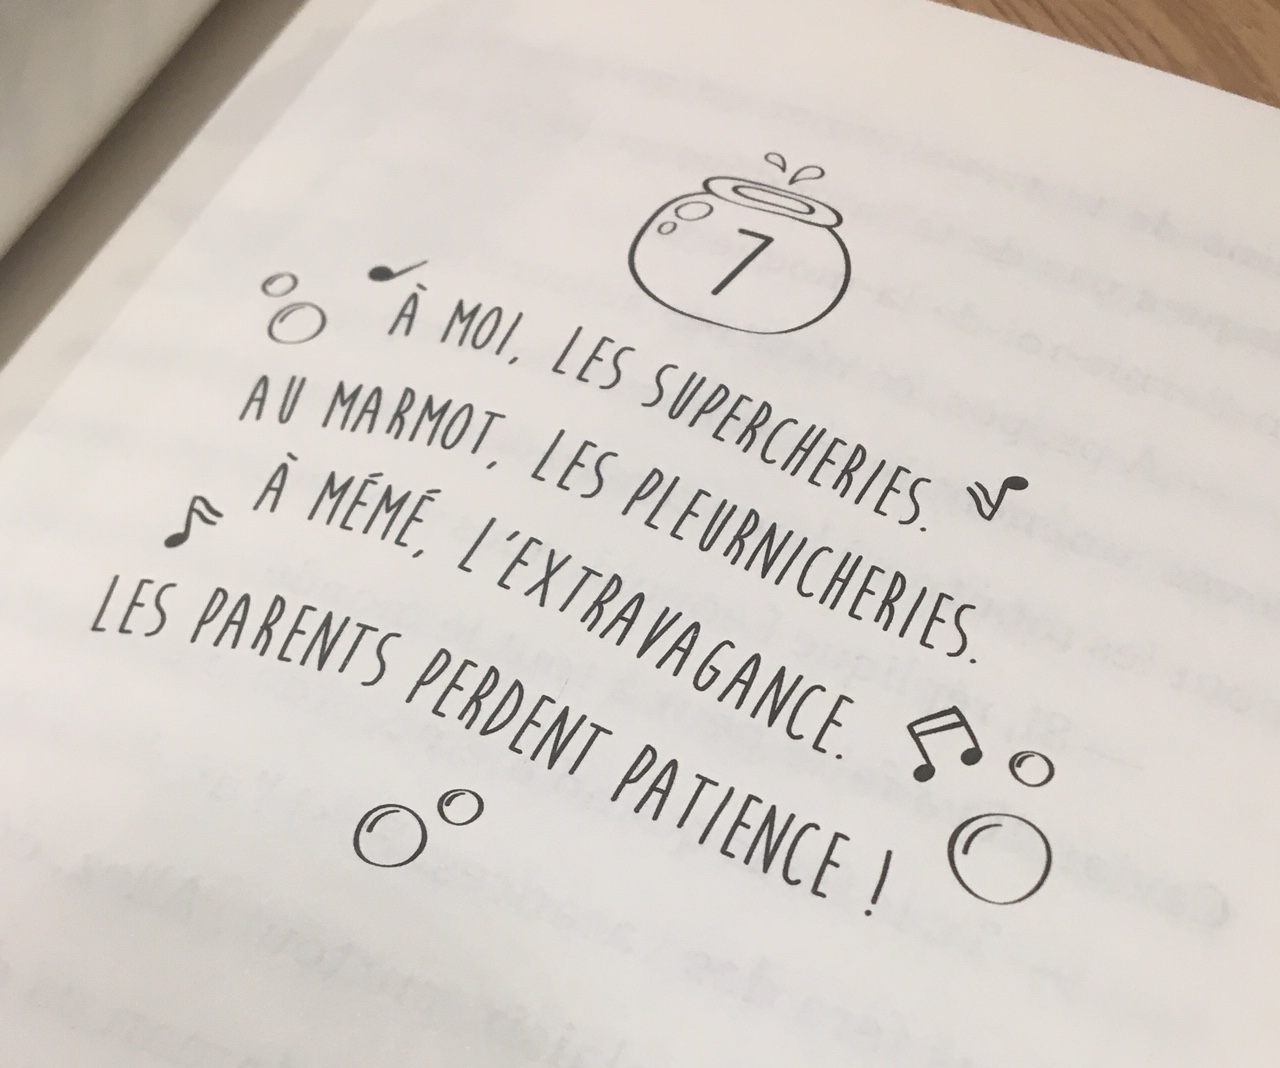 7
À MOI, LES SUPERCHERIES.
AU MARMOT, LES PLEURNICHERIES.
À MÉMÉ, L'EXTRAVAGANCE.
LES PARENTS PERDENT PATIENCE !